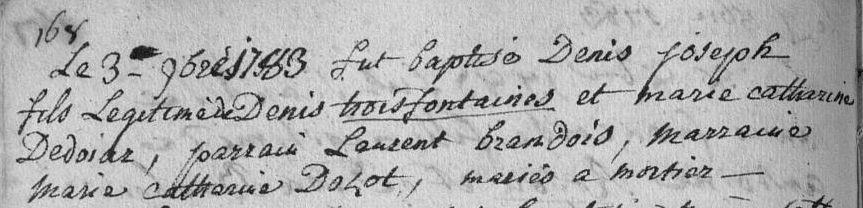 168
Le 3 9bres 1783 fut baptisé Denis joseph
fils Legitime de Denis trois fontaines et marie catharine
Dedoiar, parrain Laurent brandois, marraine
marie catharine Dozot, mariés a mortier —